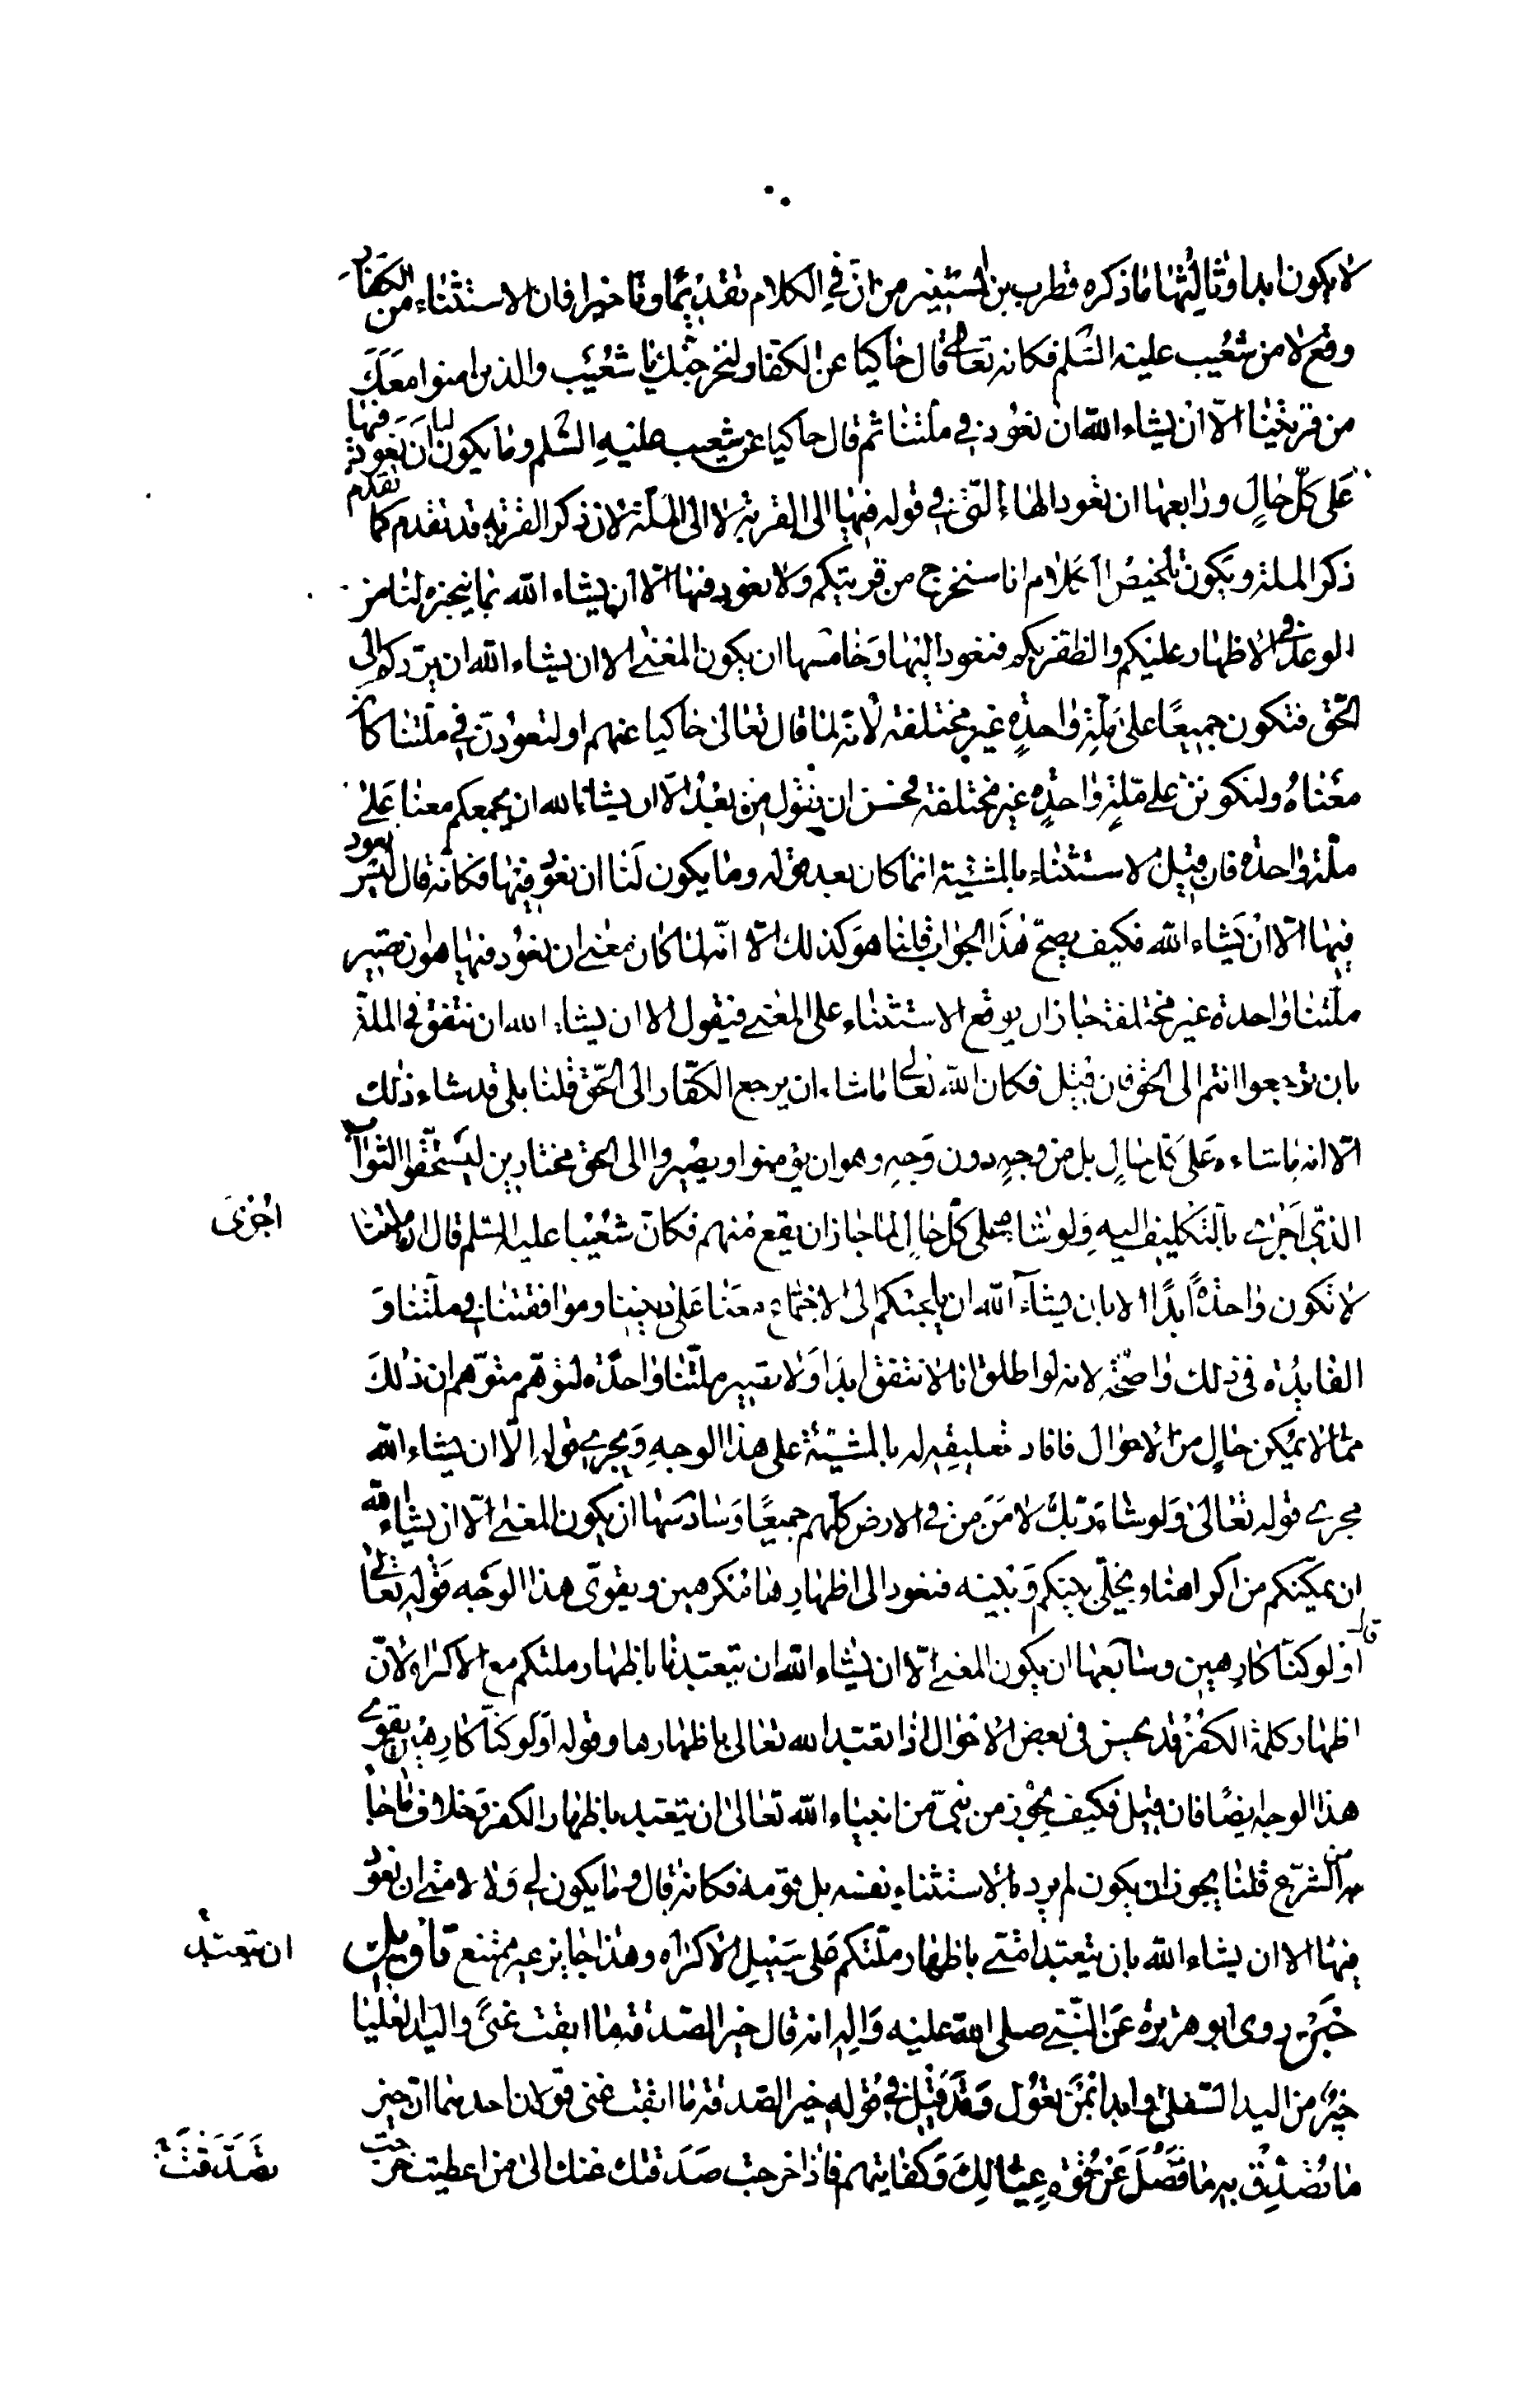 لا يكون ابدا وثالثها ما ذكره قطرب بن المستنير من انّ في الكلام تقديمًا وتاخيرا فان الاستثناء من الكفار
وقع لا من شعيب عليه السّلم فكانه تعالى قال حاكيا عن الكفار لنخرجنّك يا شعيب والذين امنوا معك
من قريتنا الّا ان يشاء الله ان نعود في ملتنا ثم قال حاكيا عن شعيب عليه السّلم وما يكون لنا ان نعود فيها
على كلّ حالٍ ورابعها ان تعود الهاء التي في قوله فيها الى القرية لا الى الملّة لان ذكر القرية قد تقدم كما تقدم
ذكر الملة ويكون تلخيص الكلام انا سنخرج من قريتكم ولا نعود فيها الّا ان يشاء الله بما ينجزه لنا من
الوعد في الاظهار عليكم والظفر بكم فنعود اليها وخامسها ان يكون المعنى الا ان يشاء الله ان يردّكم الى
الحّق فنكون جميعًا على ملّةٍ واحدةٍ غير مختلفة لانّه لما قال تعالى حاكيا عنهم او لتعودنّ في ملّتنا كان
معناه ولنكونن على ملّةٍ واحدةٍ غير مختلفة فحسن ان يقول من بعد الّا ان يشاء الله ان يجمعكم معنا على
ملّة واحدة فان قيل الاستثناء بالمشيّة انما كان بعد قوله وما يكون لنا ان نعود فيها فكانّه قال ليس نعود
فيها الّا ان يشاء الله فكيف يصحّ هذا الجواب قلنا هو كذلك الّا انّه لما كان معنى ان نعود فيها هو ان تصير
ملّتنا واحدة غير مختلفة جاز ان يوقع الاستثناء على المعنى فيقول الا ان يشاء الله ان نتفق في الملة
بان ترجعوا انتم الى الحق فان قيل فكان الله تعالى ما شاء ان يرجع الكفّار الى الحّق قلنا بلى قد شاء ذلك
الّا انه ما شاءه على كلّ حالٍ بل من وجهٍ دون وجهٍ وهو ان يؤمنوا ويصيروا الى الحق مختارين ليستحقوا الثواب
الذي اجرى بالتكليف اليه ولو شاءه على كلّ حالٍ لما جاز ان يقع منهم فكانّ شعيبا عليه السّلم قال ان ملتنا
اجزى
لا تكون واحدةً ابدًا الا بان يشاء الله ان يلجئكم الى الاجتماع معنا على ديننا وموافقتنا في ملّتنا و
الفايدة في ذلك واضحة لانه لو اطلق انا لا نتفق ابدا ولا تصير ملّتنا واحدة لتوهّم متوهّم ان ذلك
ممّا لا يمكن حالٍ من الاحوال فافاد تعليقه له بالمشيّة على هذا الوجه ويجرى قوله الّا ان يشاء الله
مجرى قوله تعالى ولو شاء ربّك لامن من في الارض كلّهم جميعًا وسادسها ان يكون المعنى الّا ان يشاء الله
ان يمكّنكم من اكراهنا ويخلّي بينكم وبينه فنعود الى اظهارها مكرهين ويقوّى هذا الوجه قوله تعالى
قال
اولو كنّا كارهين وسابعها ان يكون المعنى الّا ان يشاء الله ان يتعبّدنا باظهار ملتكم مع الاكراه لانّ
اظهار كلمة الكفر قد يحسن في بعض الاحوال اذا تعبّد الله تعالى باظهارها وقوله اولو كنّا كارهين يقوى
هذا الوجه ايضًا فان قيل فكيف يجوز من نبيّ من انبياء الله تعالى ان يتعبد باظهار الكفر وخلاف ما جاء
به من الشرع قلنا يجوز ان يكون لم يرد بالاستثناء نفسه بل قومه فكانه قال وما يكون لي ولا لامتى ان نعود
فيها الا ان يشاء الله بان يتعبد امّتى باظهار ملّتكم على سبيل الاكراه وهذا جايز غير ممتنع تاويل
ان يتعبّد
خبر روى ابو هريرة عن النّبي صلى الله عليه واله انه قال خير الصدقة ما ابقت غنًى واليد العليا
خيرٌ من اليد السفلى وابدا بمن تعول وقد قيل في قوله خير الصدقة ما ابقت غنى قولان احدهما ان خير
ما تصدّقت به ما فضل عن قوت عيالك وكفايتهم فاذا خرجت صدقتك عنك الى من اعطيت خرجت
تصدّقت